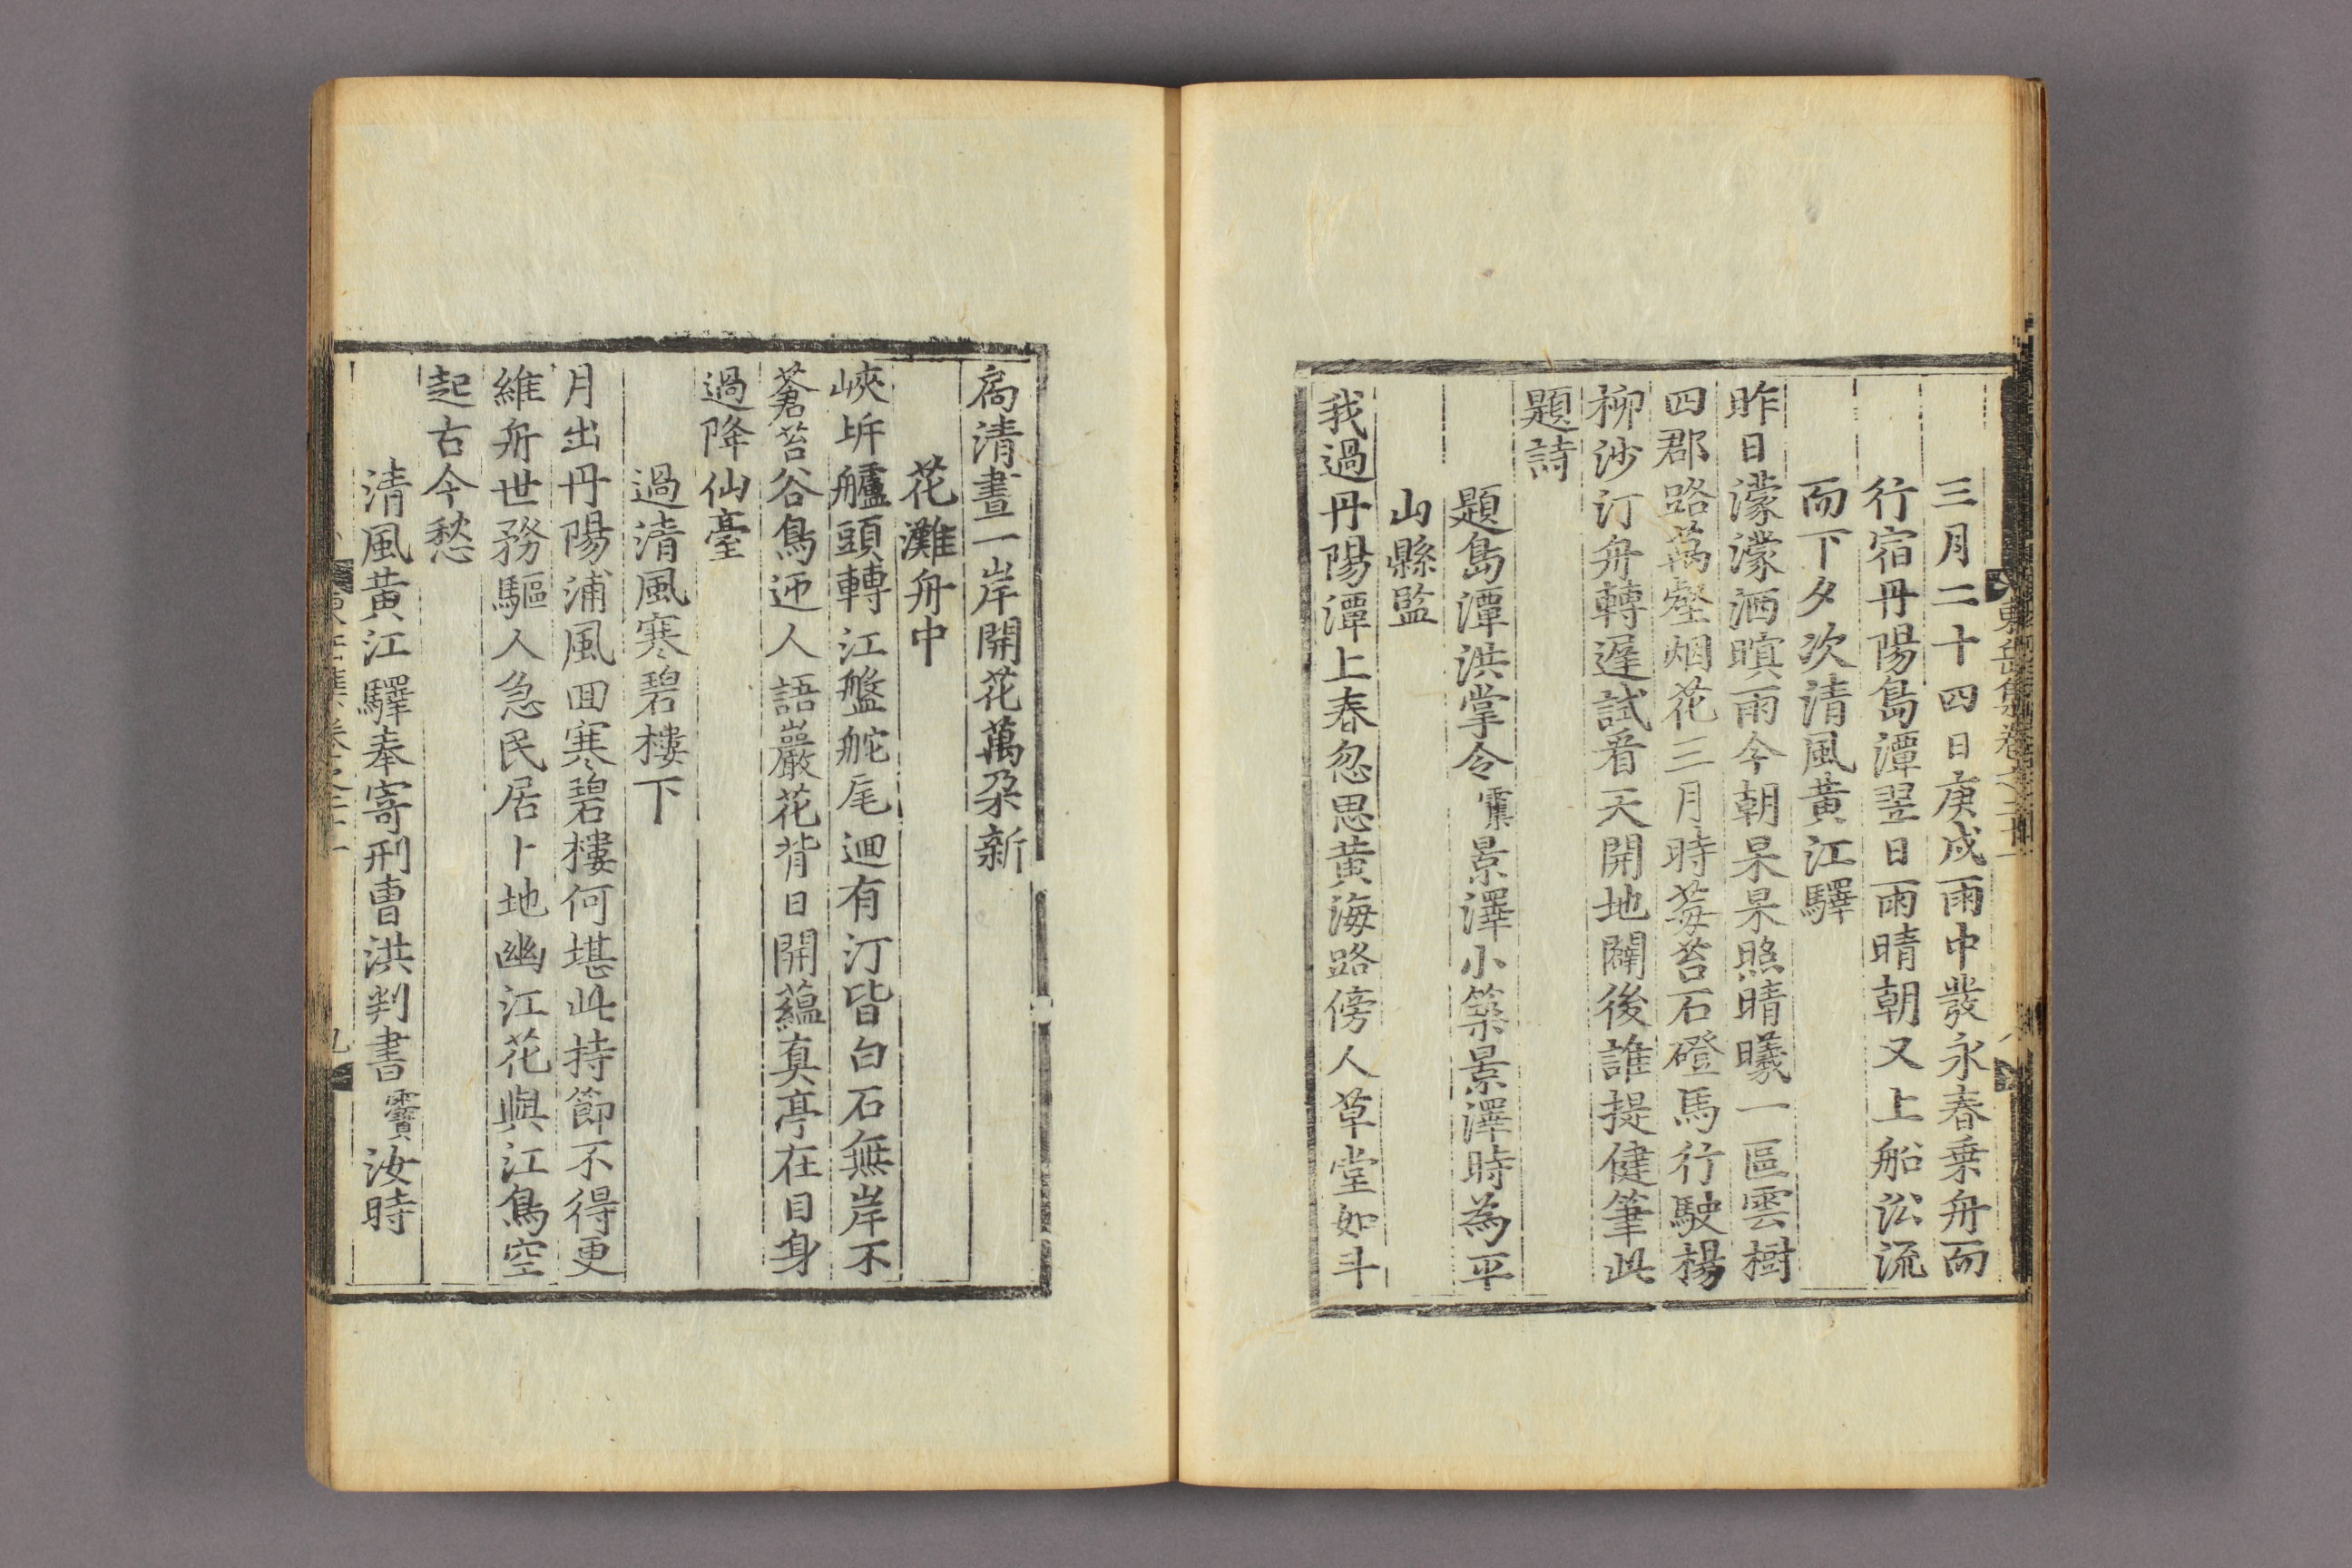 三月二十四日庚戌雨中發永春乗舟而
行宿丹陽島潭翌日雨晴朝又上船㳂流
而下夕次清風黄江驛
昨日濛濛洒暝雨今朝杲杲照晴曦一區雲樹
四郡路萬壑烟花三月時莓苔石磴馬行駛楊
柳沙汀舟轉遲試看天開地闢後誰提健筆此
題詩
題島潭洪掌令霫景澤小築景澤時為平
山縣監
我過丹陽潭上春忽思黄海路傍人草堂如斗
扄清晝一岸開花萬朶新
花灘舟中
峽坼艫頭轉江盤舵尾廻有汀皆白石無岸不
蒼苔谷鳥迊人語巖花背日開蘊真亭在目身
過降仙臺
過清風寒碧樓下
月出丹陽浦風囬寒碧樓何堪此持節不得更
維舟世務驅人急民居卜地幽江花與江鳥空
起古今愁
清風黄江驛奉寄刑曹洪判書霣汝時
九